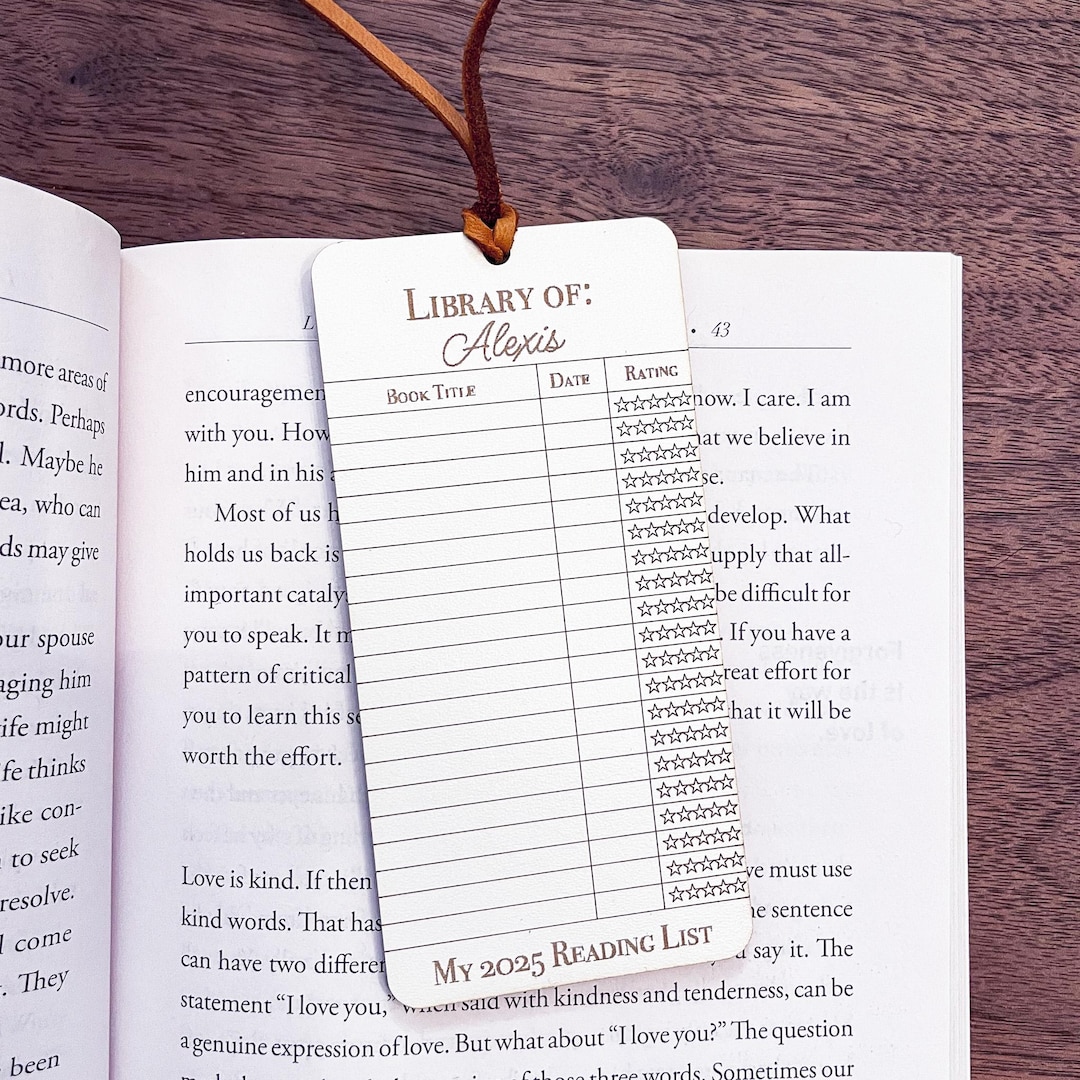 Library of:
Alexis
Book Title Date Rating
My 2025 Reading List
more areas of
ords. Perhaps
l. Maybe he
ea, who can
ds may give
our spouse
aging him
ife might
fe thinks
ike con-
to seek
resolve.
l come
. They
been
L • 43
encouragemen now. I care. I am
with you. How hat we believe in
him and in his se.
Most of us h develop. What
holds us back is upply that all-
important cataly be difficult for
you to speak. It m . If you have a
pattern of critical reat effort for
you to learn this se that it will be
worth the effort.
Love is kind. If then ve must use
kind words. That has he sentence
can have two differen u say it. The
statement “I love you,” when said with kindness and tenderness, can be
a genuine expression of love. But what about “I love you?” The question
of those three words. Sometimes our
Forgiveness
is the way
of love.